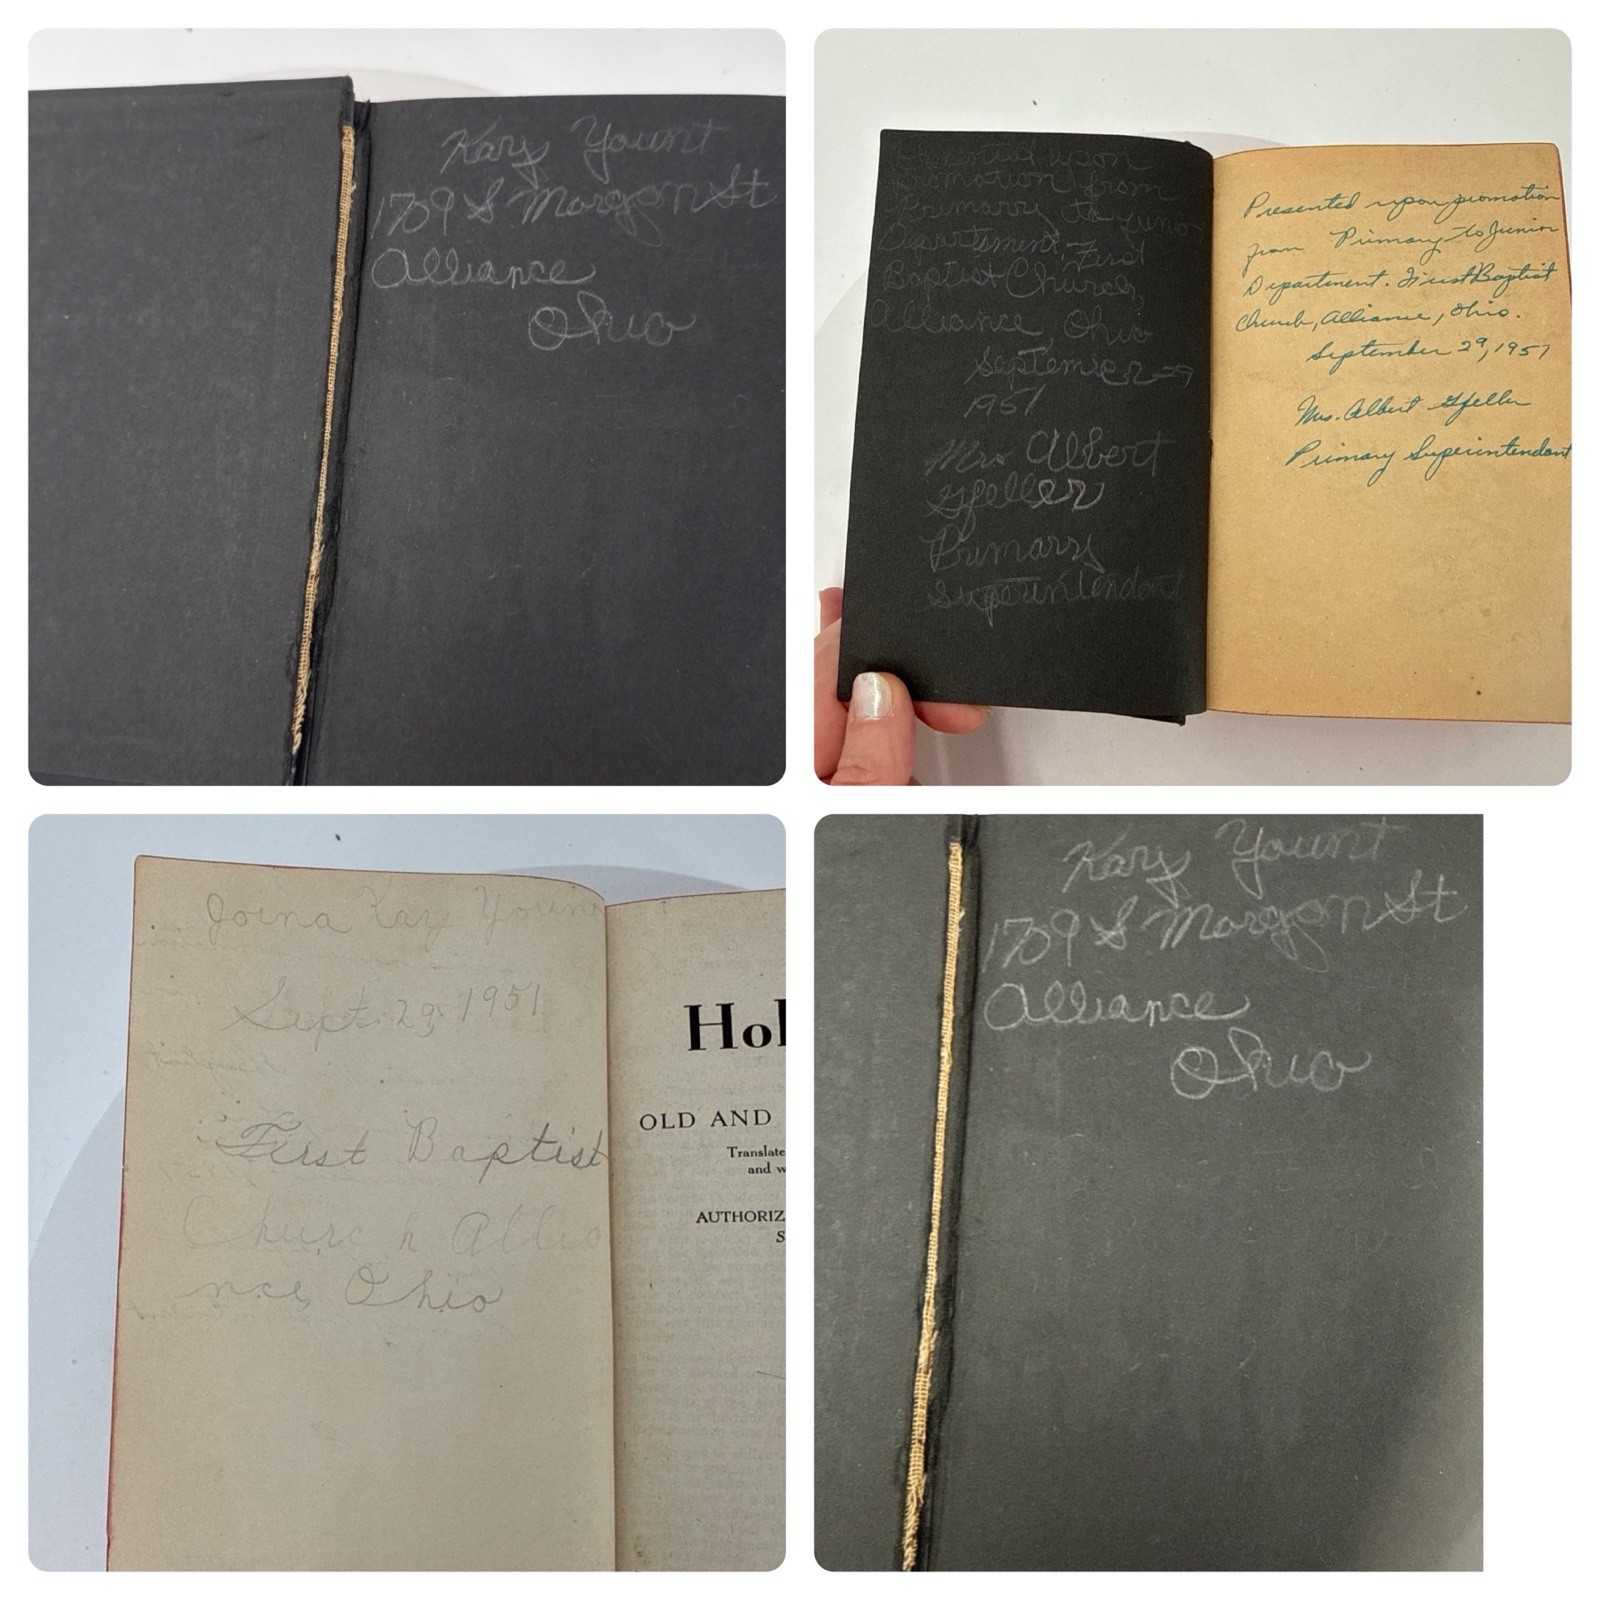 Kary Yount
1709 S Morgan St
Alliance
Ohio
Presented upon
Promotion from
Primarry to Junior
Department, First
Baptist Church,
Alliance, Ohio
September 29
1951
Mrs Albert
Gfeller
Primary
Superintendant
Presented upon promotion
from Primary to Junior
Department. First Baptist
Church, Alliance, Ohio.
September 29, 1951
Mrs. Albert Gfeller
Primary Superintendant
Kay Youn
Sept. 29, 1951
First Baptist
Church Allia
nce, Ohio
Hol
OLD AND
Translate
and w
AUTHORIZ
S
Kary Yount
1709 S Morgan St
Alliance
Ohio